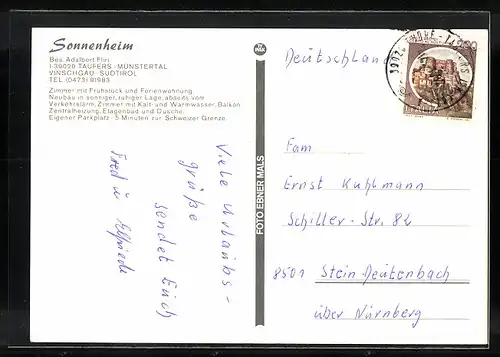 Sonnenheim
Bes. Adalbert Fliri
I-39020 TAUFERS - MÜNSTERTAL
VINSCHGAU - SÜDTIROL
TEL (0473) 81983
Zimmer mit Frühstück und Ferienwohnung.
Neubau in sonniger, ruhiger Lage, abseits vom
Verkehrslärm, Zimmer mit Kalt- und Warmwasser, Balkon
Zentralheizung, Etagenbad und Dusche.
Eigener Parkplatz - 5 Minuten zur Schweizer Grenze.
Viele Urlaubs-
grüße
sendet Euch
Fred u. Elfriede
FOTO EBNER MALS
Deutschland
Fam
Ernst Kuhlmann
Schiller-Str. 82
8501 Stein Deutenbach
über Nürnberg